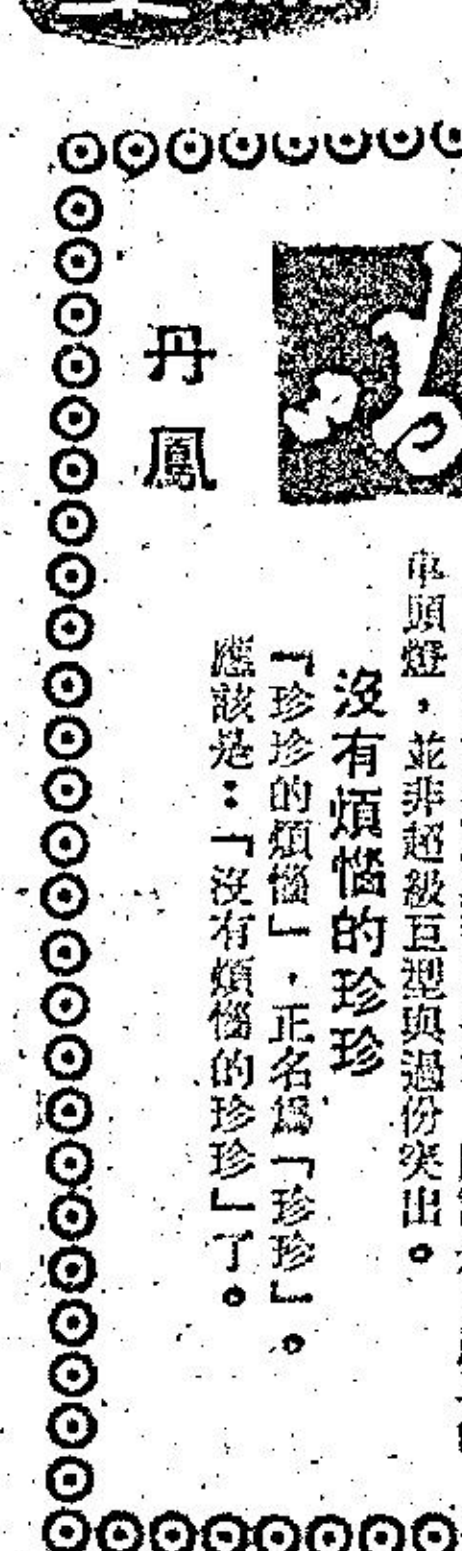 車頭燈,並非超級巨型與過份突出。
沒有煩惱的珍珍
「珍珍的煩惱」,正名爲「珍珍」。
應該是:「沒有煩惱的珍珍」了。
丹鳳